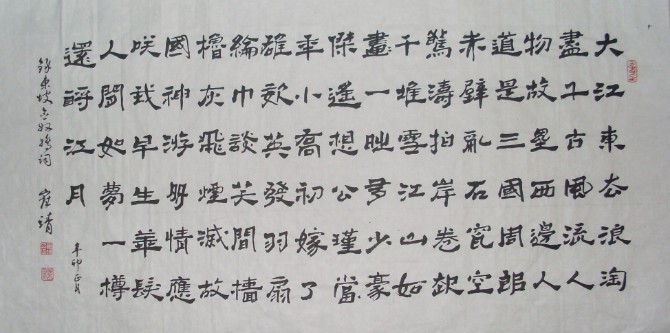 大江東去浪淘
盡千古風流人
物故壘西邊人
道是三國周郎
赤壁亂石穿空
驚濤拍岸卷起
千堆雪江山如
畫一時多少豪
傑遙想公瑾當
年小喬初嫁了
雄姿英發羽扇
綸巾談笑間檣
櫓灰飛煙滅故
國神游多情應
咲我早生華髮
人間如夢一樽
還酹江月
錄東坡念奴嬌詞 崔靖
辛卯正月